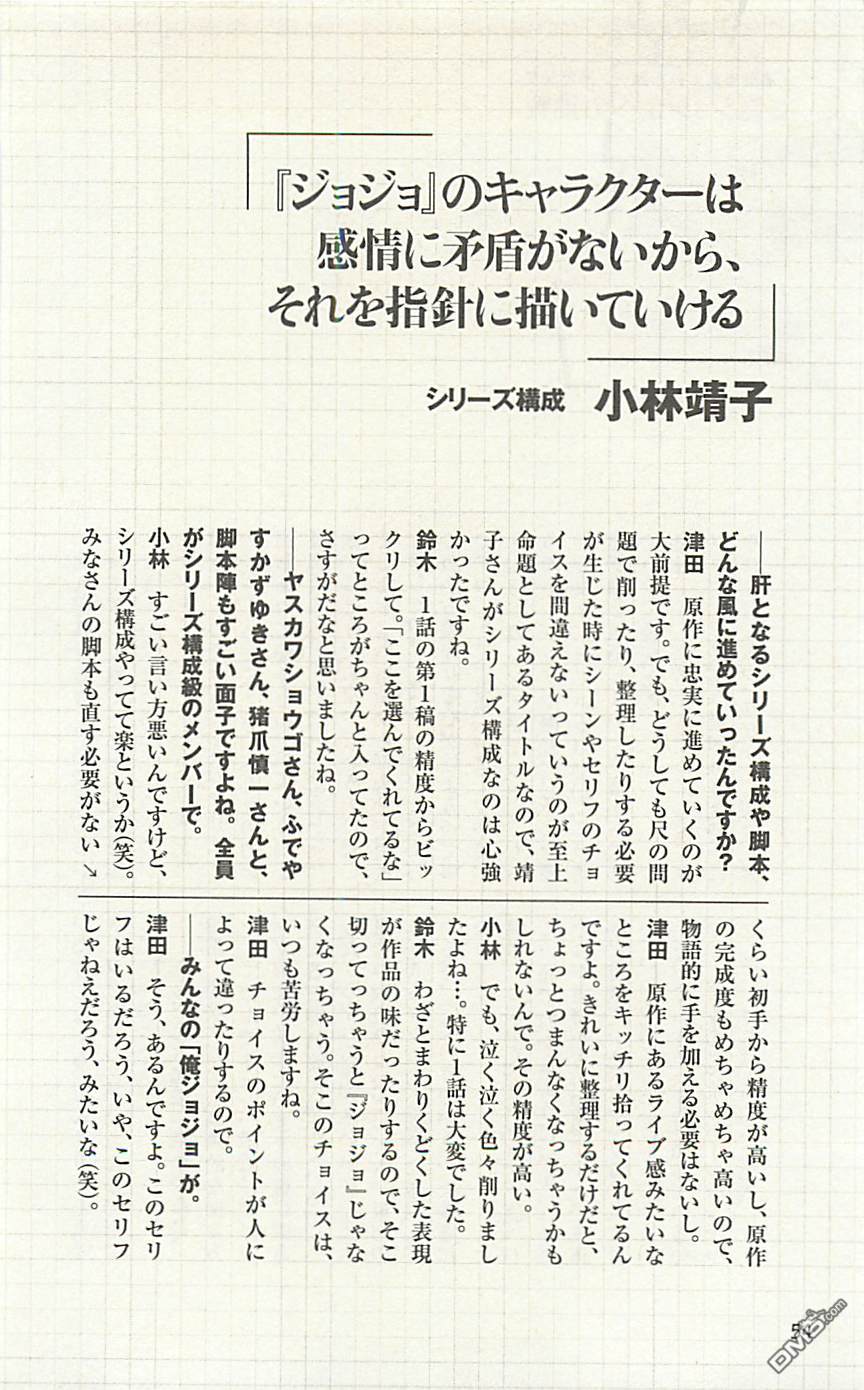 『ジョジョ』のキャラクターは
感情に矛盾がないから、
それを指針に描いていける
シリーズ構成 小林靖子
――肝となるシリーズ構成や脚本、
どんな風に進めていったんですか?
津田 原作に忠実に進めていくのが
大前提です。でも、どうしても尺の問
題で削ったり、整理したりする必要
が生じた時にシーンやセリフのチョ
イスを間違えないっていうのが至上
命題としてあるタイトルなので、靖
子さんがシリーズ構成なのは心強
かったですね。
鈴木 1話の第1稿の精度からビッ
クリして。「ここを選んでくれてるな」
ってところがちゃんと入ってたので、
さすがだなと思いましたね。
――ヤスカワショウゴさん、ふでや
すかずゆきさん、猪爪慎一さんと、
脚本陣もすごい面子ですよね。全員
がシリーズ構成級のメンバーで。
小林 すごい言い方悪いんですけど、
シリーズ構成やってて楽というか(笑)。
みなさんの脚本も直す必要がない↘
くらい初手から精度が高いし、原作
の完成度もめちゃめちゃ高いので、
物語的に手を加える必要はないし。
津田 原作にあるライブ感みたいな
ところをキッチリ拾ってくれてるん
ですよ。きれいに整理するだけだと、
ちょっとつまんなくなっちゃうかも
しれないんで。その精度が高い。
小林 でも、泣く泣く色々削りまし
たよね…。特に1話は大変でした。
鈴木 わざとまわりくどくした表現
が作品の味だったりするので、そこ
切ってっちゃうと『ジョジョ』じゃな
くなっちゃう。そこのチョイスは、
いつも苦労しますね。
津田 チョイスのポイントが人に
よって違ったりするので。
――みんなの「俺ジョジョ」が。
津田 そう、あるんですよ。このセリ
フはいるだろう、いや、このセリフ
じゃねえだろう、みたいな(笑)。
DM5.com